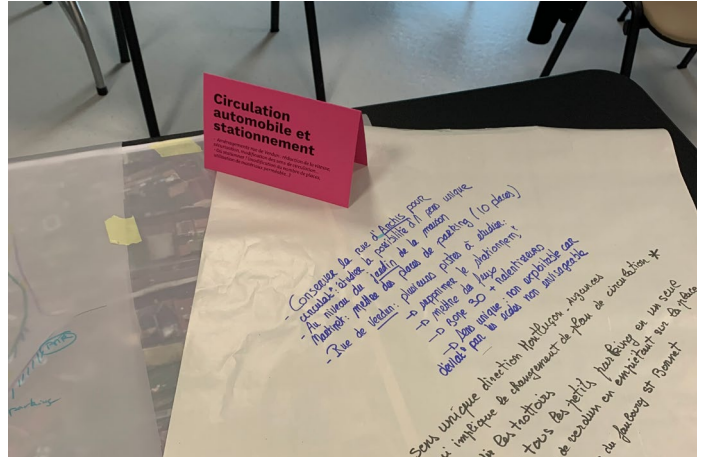 Circulation
automobile et
stationnement
- Conserver la rue d'Archis pour
circulat°: étudier la possibilité d'1 sens unique
- Au niveau du jardin de la maison
mettre des places de parking (10 places)
- Rue de verdun: plusieurs pistes à étudier:
→ supprimer le stationnement
→ mettre de flux
→ zone 30 + ralentisseurs
→ sens unique: non exploitable car
déviat° par les écoles non envisageable
sens unique direction Montluçon
implique le changement de plan de circulation *
les trottoirs
tous les petits parking en un seul
de verdun en empiétant sur la place
du faubourg St Bonnet
parking